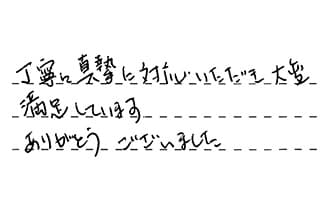 丁寧に真摯に対応いただき大変
満足しています
ありがとうございました